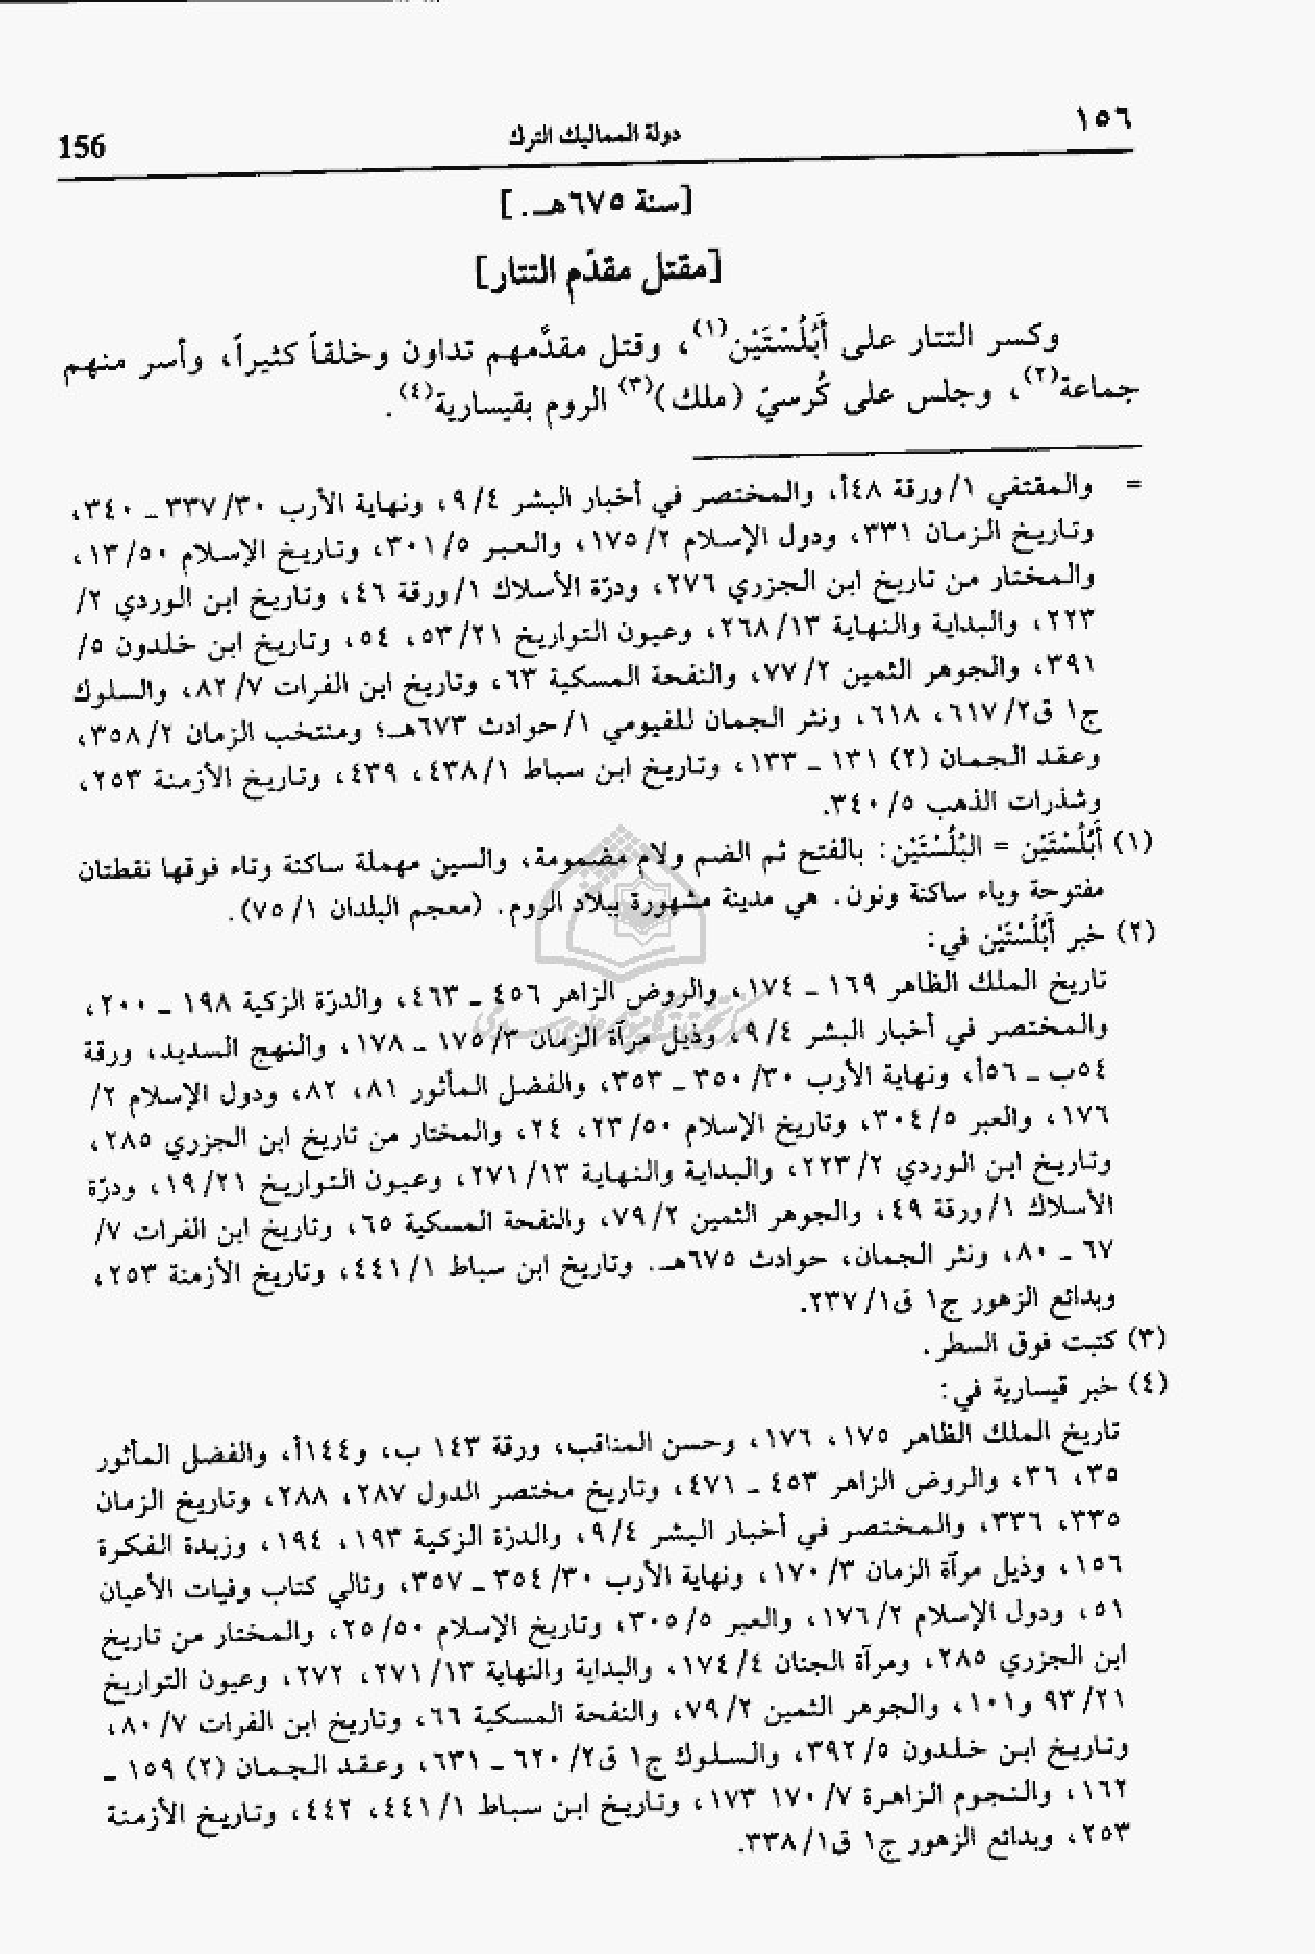 ١٥٦
دولة المماليك الترك
156
[سنة ٦٧٥هـ.]
[مقتل مقدّم التتار]
وكسر التتار على أَبُلُسْتَيْن(١)، وقتل مقدَّمهم تداون وخلقاً كثيراً، وأسر منهم
جماعة(٢)، وجلس على كُرسيّ (ملك)(٣) الروم بقيسارية(٤).
= والمقتفي ١/ورقة ٤٨أ، والمختصر في أخبار البشر ٩/٤، ونهاية الأرب ٣٣٧/٣٠ ـ ٣٤٠،
وتاريخ الزمان ٣٣١، ودول الإسلام ١٧٥/٢، والعبر ٣٠١/٥، وتاريخ الإسلام ١٣/٥٠،
والمختار من تاريخ ابن الجزري ٢٧٦، ودرّة الأسلاك ١/ورقة ٤٦، وتاريخ ابن الوردي ٢/
٢٢٣، والبداية والنهاية ٢٦٨/١٣، وعيون التواريخ ٥٣/٢١، ٥٤، وتاريخ ابن خلدون ٥/
٣٩١، والجوهر الثمين ٧٧/٢، والنفحة المسكية ٦٣، وتاريخ ابن الفرات ٨٢/٧، والسلوك
ج١ ق٦١٧/٢، ٦١٨، ونثر الجمان للفيومي ١/حوادث ٦٧٣هـ؛ ومنتخب الزمان ٣٥٨/٢،
وعقد الجمان (٢) ١٣١ ـ ١٣٣، وتاريخ ابن سباط ٤٣٨/١، ٤٣٩، وتاريخ الأزمنة ٢٥٣،
وشذرات الذهب ٣٤٠/٥.
(١) أَبُلُسْتَيْن = البُلُسْتَيْن: بالفتح ثم الضم ولام مضمومة، والسين مهملة ساكنة وتاء فوقها نقطتان
مفتوحة وياء ساكنة ونون. هي مدينة مشهورة ببلاد الروم. (معجم البلدان ٧٥/١).
(٢) خبر أَبُلُسْتَيْن في:
تاريخ الملك الظاهر ١٦٩ ـ ١٧٤، والروض الزاهر ٤٥٦ ـ ٤٦٣، والدرّة الزكية ١٩٨ ـ ٢٠٠،
والمختصر في أخبار البشر ٩/٤، وذيل مرآة الزمان ١٧٥/٣ ـ ١٧٨، والنهج السديد، ورقة
٥٤ب ـ ٥٦أ، ونهاية الأرب ٣٥٠/٣٠ ـ ٣٥٣، والفضل المأثور ٨١، ٨٢، ودول الإسلام ٢/
١٧٦، والعبر ٣٠٤/٥، وتاريخ الإسلام ٢٣/٥٠، ٢٤، والمختار من تاريخ ابن الجزري ٢٨٥،
وتاريخ ابن الوردي ٢٢٣/٢، والبداية والنهاية ٢٧١/١٣، وعيون التواريخ ١٩/٢١، ودرّة
الأسلاك ١/ورقة ٤٩، والجوهر الثمين ٧٩/٢، والنفحة المسكية ٦٥، وتاريخ ابن الفرات ٧/
٦٧ ـ ٨٠، ونثر الجمان، حوادث ٦٧٥هـ. وتاريخ ابن سباط ٤٤١/١، وتاريخ الأزمنة ٢٥٣،
وبدائع الزهور ج١ ق٢٣٧/١.
(٣) كتبت فوق السطر.
(٤) خبر قيسارية في:
تاريخ الملك الظاهر ١٧٥، ١٧٦، وحسن المناقب، ورقة ١٤٣ ب، و١٤٤أ، والفضل المأثور
٣٥، ٣٦، والروض الزاهر ٤٥٣ ـ ٤٧١، وتاريخ مختصر الدول ٢٨٧، ٢٨٨، وتاريخ الزمان
٣٣٥، ٣٣٦، والمختصر في أخبار البشر ٩/٤، والدرّة الزكية ١٩٣، ١٩٤، وزبدة الفكرة
١٥٦، وذيل مرآة الزمان ١٧٠/٣، ونهاية الأرب ٣٥٤/٣٠ ـ ٣٥٧، وتالي كتاب وفيات الأعيان
٥١، ودول الإسلام ١٧٦/٢، والعبر ٣٠٥/٥، وتاريخ الإسلام ٢٥/٥٠، والمختار من تاريخ
ابن الجزري ٢٨٥، ومرآة الجنان ١٧٤/٤، والبداية والنهاية ٢٧١/١٣، ٢٧٢، وعيون التواريخ
٩٣/٢١ و١٠١، والجوهر الثمين ٧٩/٢، والنفحة المسكية ٦٦، وتاريخ ابن الفرات ٨٠/٧،
وتاريخ ابن خلدون ٣٩٢/٥، والسلوك ج١ ق٦٢٠/٢ ـ ٦٣١، وعقد الجمان (٢) ١٥٩ ـ
١٦٢، والنجوم الزاهرة ١٧٠/٧ ١٧٣، وتاريخ ابن سباط ٤٤١/١، ٤٤٢، وتاريخ الأزمنة
٢٥٣، وبدائع الزهور ج١ ق٣٣٨/١.